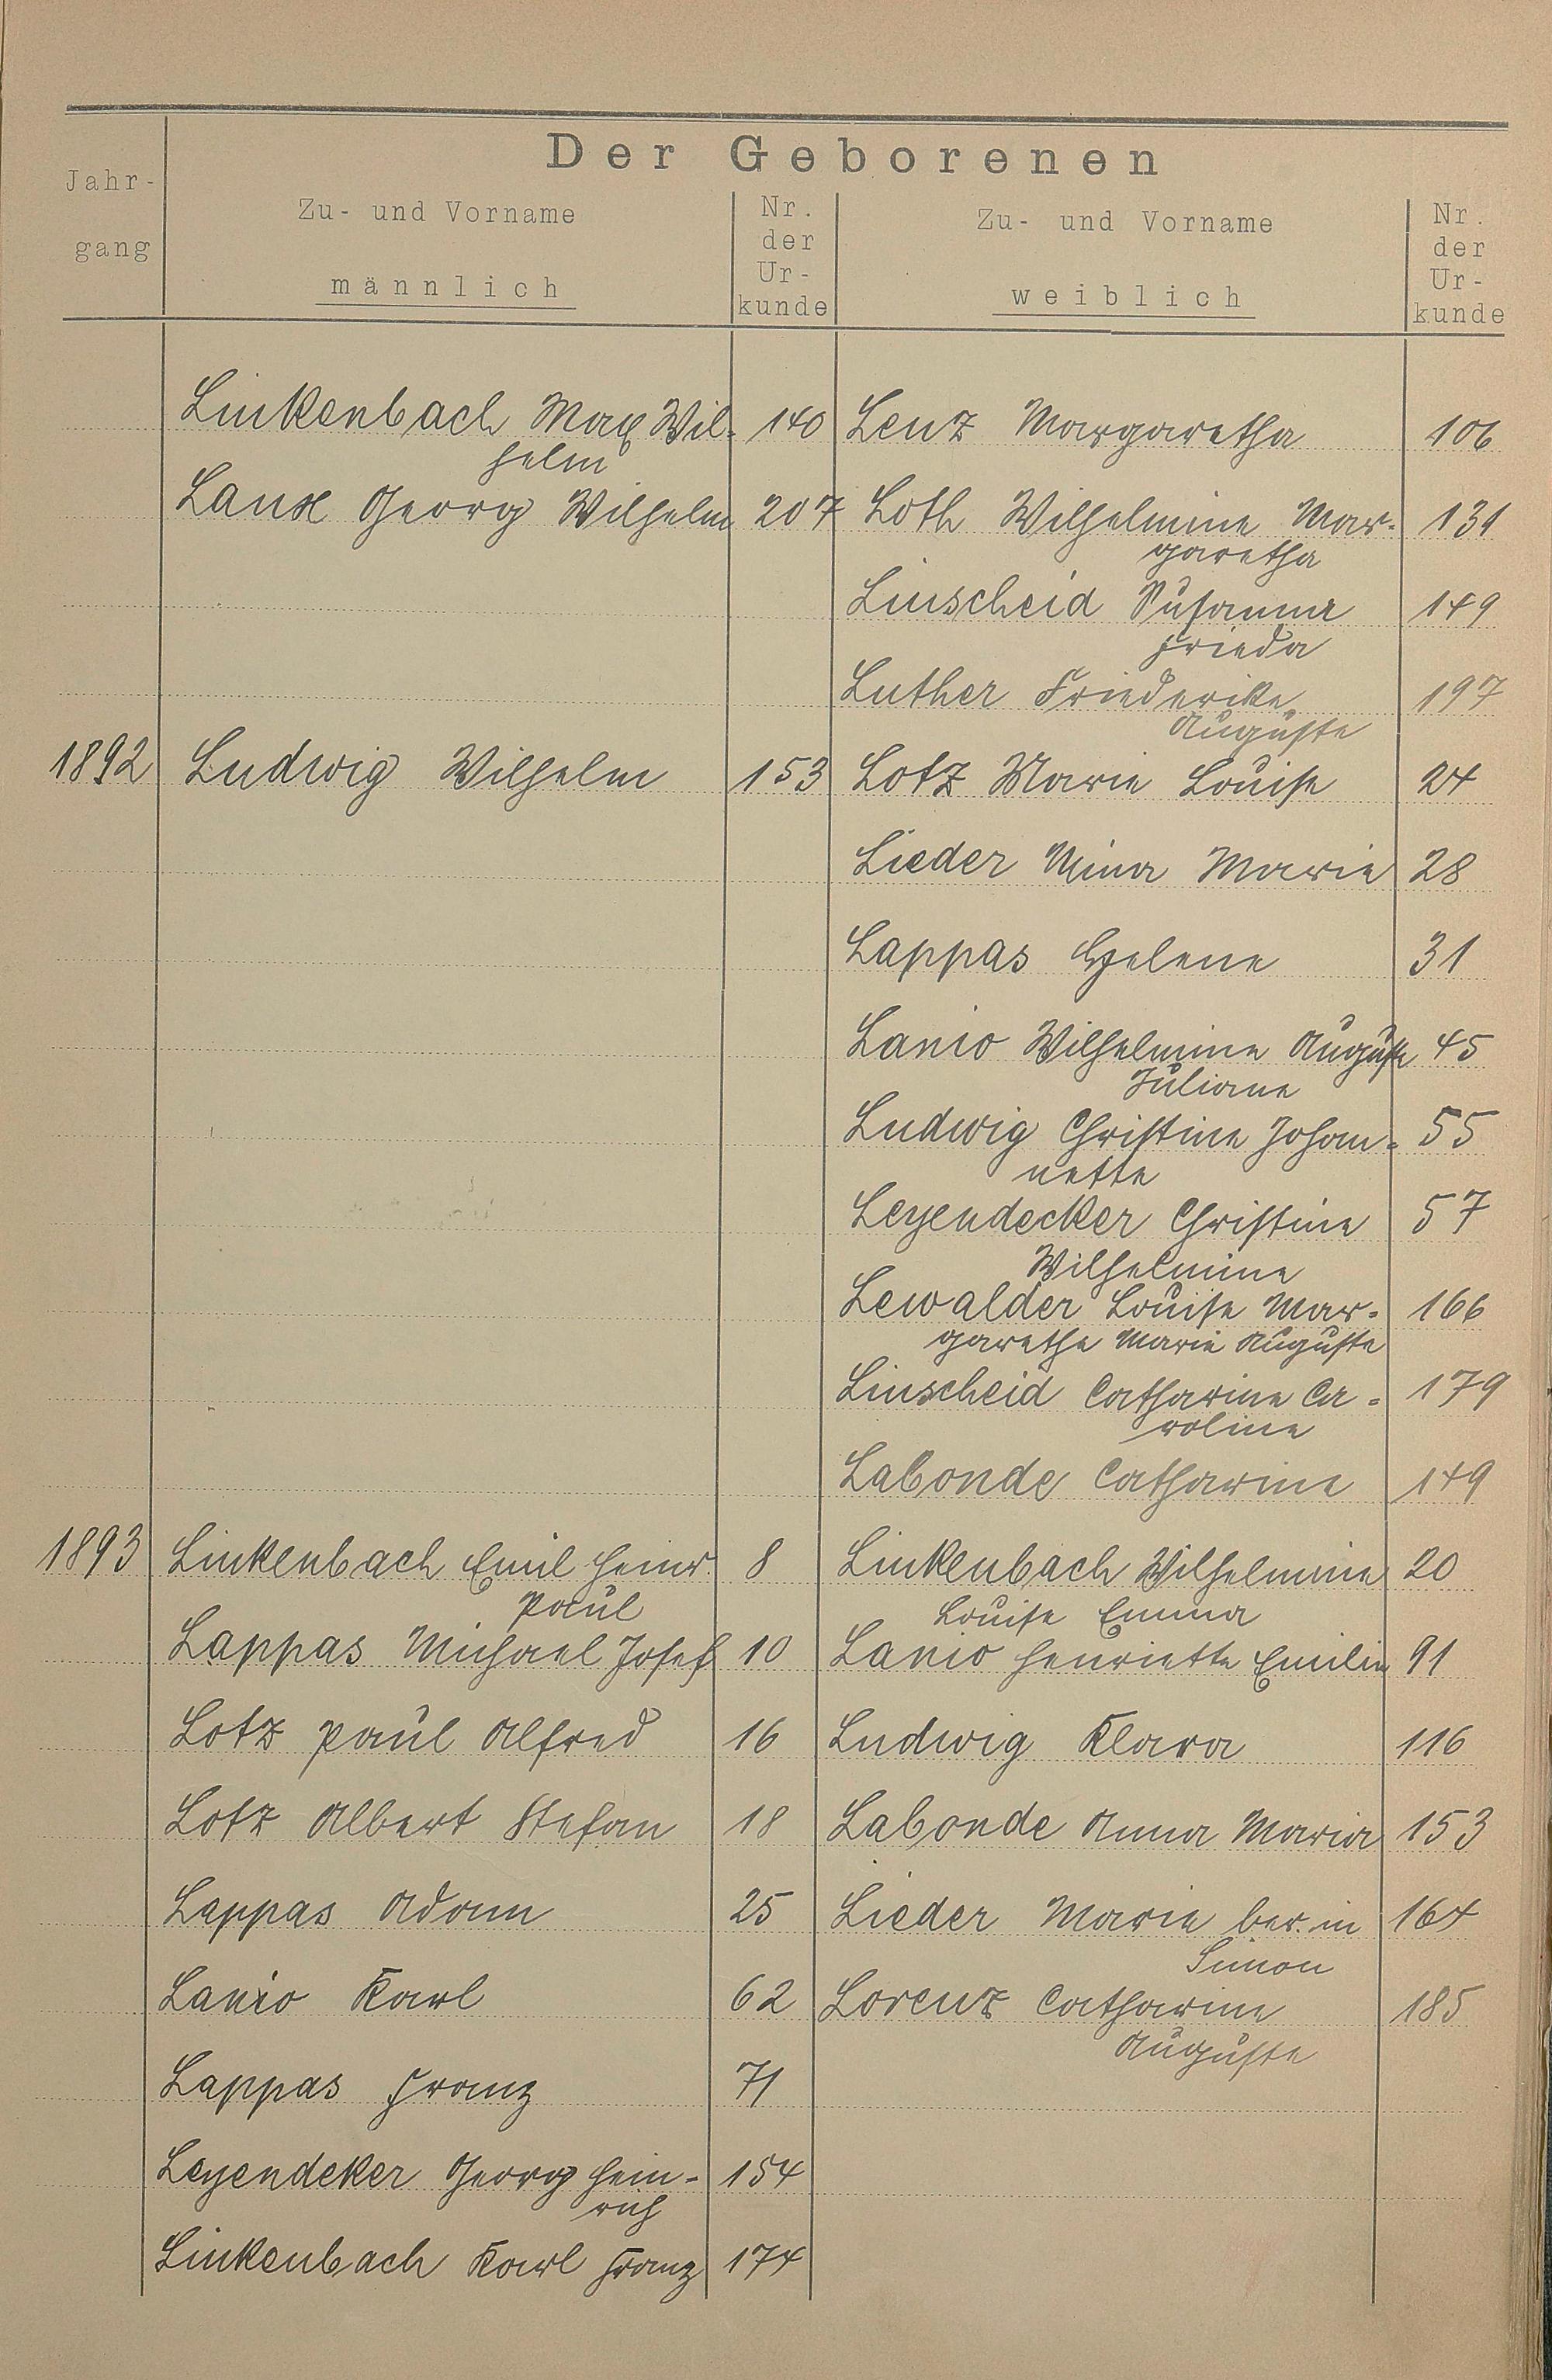 Der Geborenen
Jahr-
gang
Zu- und Vorname
männlich
Nr.
der
Ur-
kunde
Zu- und Vorname
weiblich
Nr.
der
Ur-
kunde
Linkenbach Max Wil- 140 Lenz Margaretha 106
helm
Laux Georg Wilhelm 207 Loth Wilhelmine Mar- 131
garetha
Linscheid Susanna 149
Frieda
Luther Friederike 197
Auguste
1892 Ludwig Wilhelm 153 Lotz Marie Louise 24
Lieder Mina Marie 28
Lappas Helene 31
Lanio Wilhelmine Auguste 45
Juliane
Ludwig Christine Johan- 55
nette
Leyendecker Christine 57
Wilhelmine
Lewalder Louise Mar- 166
garethe Marie Auguste
Linscheid Catharine Ca- 179
roline
Labonde Catharine 149
1893 Linkenbach Emil Heinr. 8 Linkenbach Wilhelmine 20
Paul Louise Emma
Lappas Michael Josef 10 Lanio Henriette Emilie 91
Lotz Paul Alfred 16 Ludwig Klara 116
Lotz Albert Stefan 18 Labonde Anna Maria 153
Lappas Adam 25 Lieder Marie ber. in 164
Simon
Lanio Karl 62 Lorenz Catharine 185
Auguste
Lappas Franz 71
Leyendeker Georg Hein- 154
rich
Linkenbach Karl Franz 174